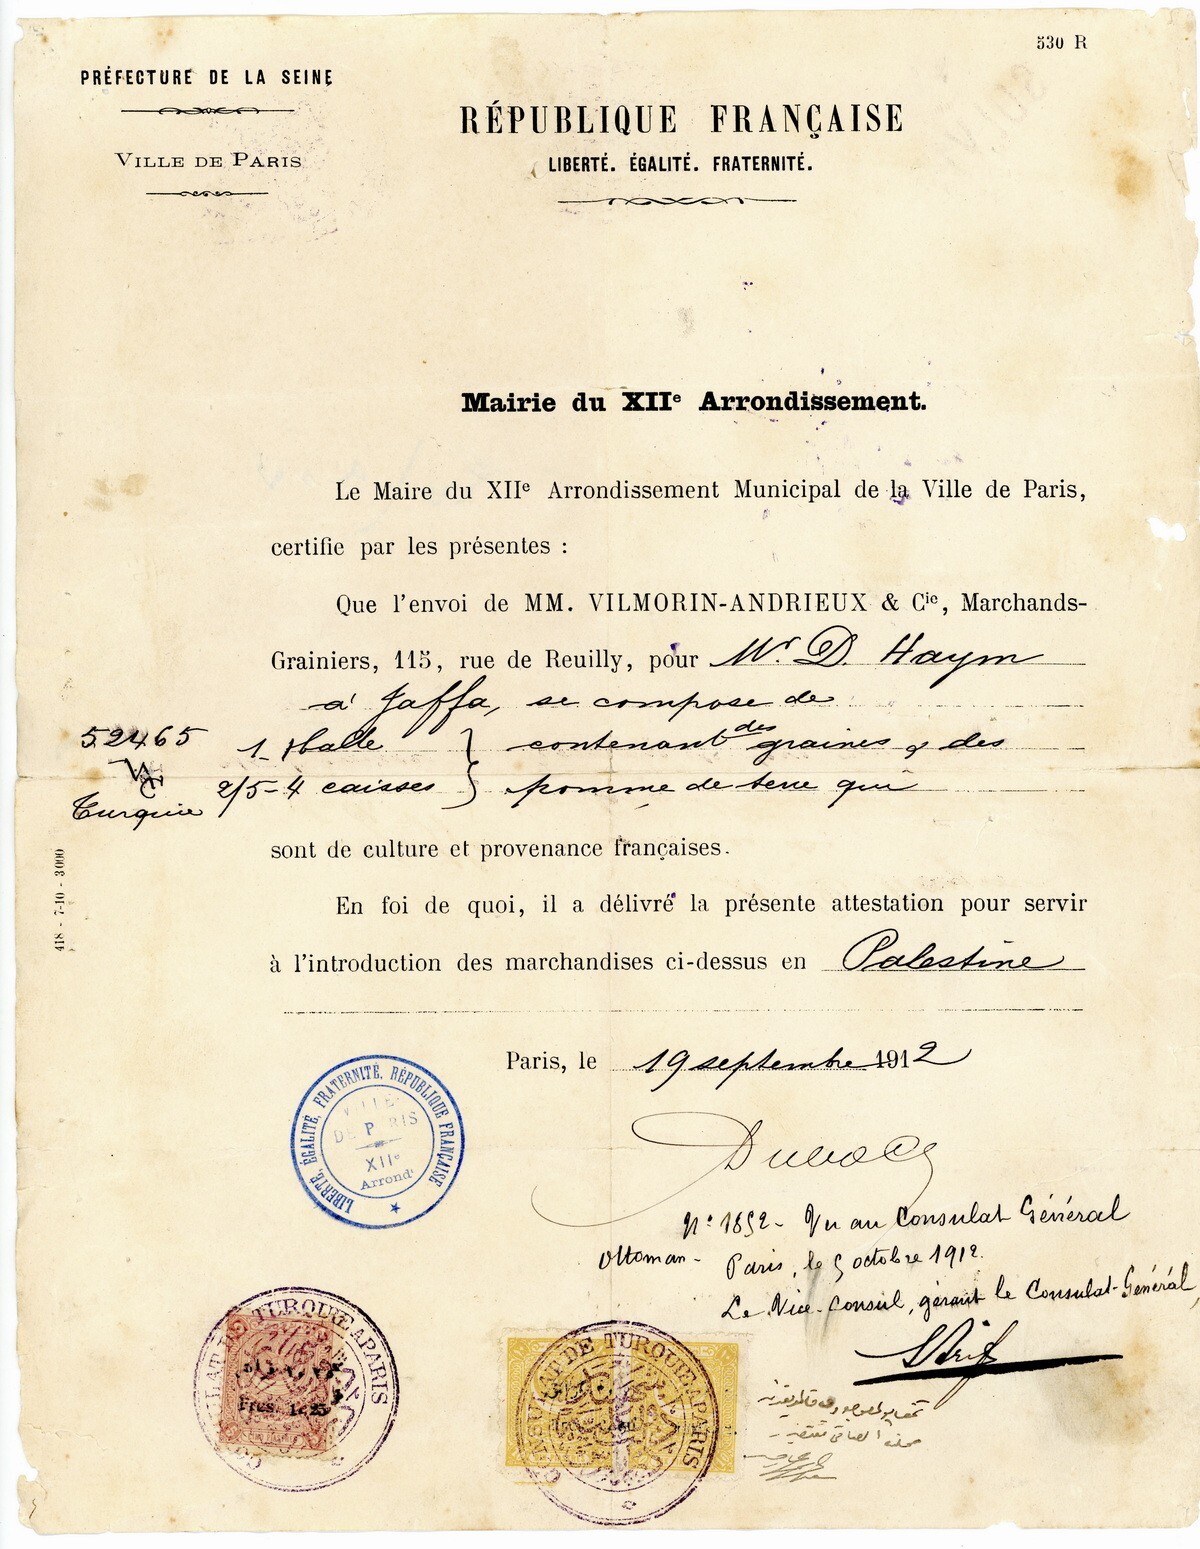 530 R
PRÉFECTURE DE LA SEINE
VILLE DE PARIS
RÉPUBLIQUE FRANÇAISE
LIBERTÉ. ÉGALITÉ. FRATERNITÉ.
Mairie du XIIe Arrondissement.
Le Maire du XIIe Arrondissement Municipal de la Ville de Paris,
certifie par les présentes :
Que l'envoi de MM. VILMORIN-ANDRIEUX & Cie, Marchands-
Grainiers, 115, rue de Reuilly, pour Mr. D. Haym
à Jaffa, se compose de
52465 1 balle } contenant des graines & des
Turquie 2/5-4 caisses } pomme de terre qui
sont de culture et provenance françaises.
En foi de quoi, il a délivré la présente attestation pour servir
à l'introduction des marchandises ci-dessus en Palestine
418 - 7-10 - 3000
Paris, le 19 septembre 1912
LIBERTÉ, ÉGALITÉ, FRATERNITÉ, RÉPUBLIQUE FRANÇAISE
VILLE
DE PARIS
XIIe
Arrondt
No 1852 - Vu au Consulat Général
Ottoman - Paris, le 5 octobre 1912.
Le Vice-Consul, gérant le Consulat-Général
CONSULAT DE TURQUIE A PARIS
Frcs. 1.25
CONSULAT DE TURQUIE A PARIS